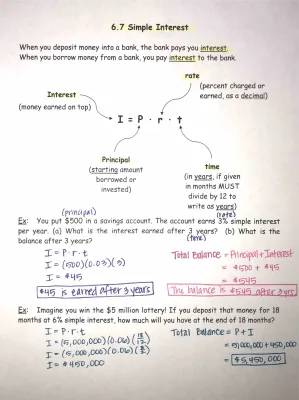 6.7 Simple Interest
When you deposit money into a bank, the bank pays you interest.
When you borrow money from a bank, you pay interest to the bank.
rate
(percent charged or
earned, as a decimal)
Interest
(money earned on top)
I = P · r · t
Principal
(starting amount
borrowed or
invested)
time
(in years, if given
in months MUST
divide by 12 to
write as years)
(principal)
(rate)
Ex: You put $500 in a savings account. The account earns 3% simple interest
per year. (a) What is the interest earned after 3 years? (b) What is the
(time)
balance after 3 years?
I = P·r·t
I = (500)(0.03)(3)
I = $45
$45 is earned after 3 years
Total Balance = Principal + Interest
= $500 + $45
= $545
The balance is $545 after 3 yrs
Ex: Imagine you win the $5 million lottery! If you deposit that money for 18
months at 6% simple interest, how much will you have at the end of 18 months?
I = P·r·t
I = (5,000,000)(0.06)(18/12)
I = (5,000,000)(0.06)(3/2)
I = $450,000
Total Balance = P + I
= 5,000,000 + 450,000
= $5,450,000